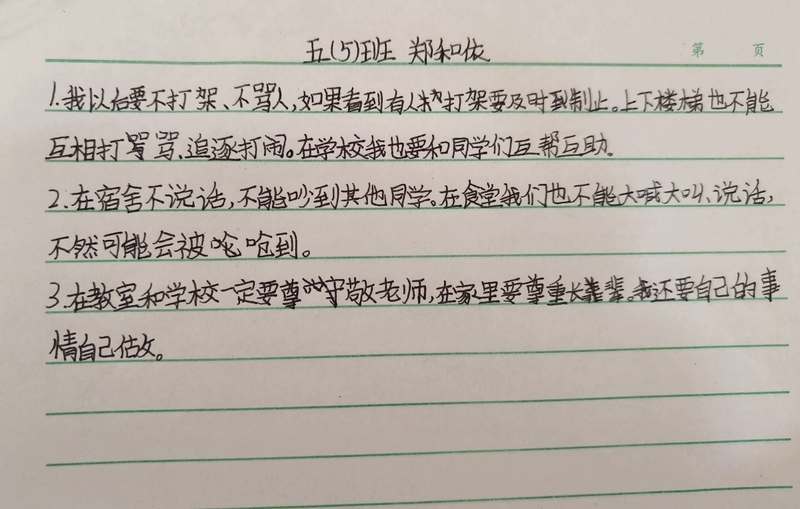 五(5)班 郑和依
第 页
1.我以后要不打架、不骂人,如果看到有人打架要及时到制止。上下楼梯也不能
互相打骂、追逐打闹。在学校我也要和同学们互帮互助。
2.在宿舍不说话,不能吵到其他同学。在食堂我们也不能大喊大叫、说话,
不然可能会被呛到。
3.在教室和学校一定要尊敬老师,在家里要尊重长辈。我还要自己的事
情自己做。